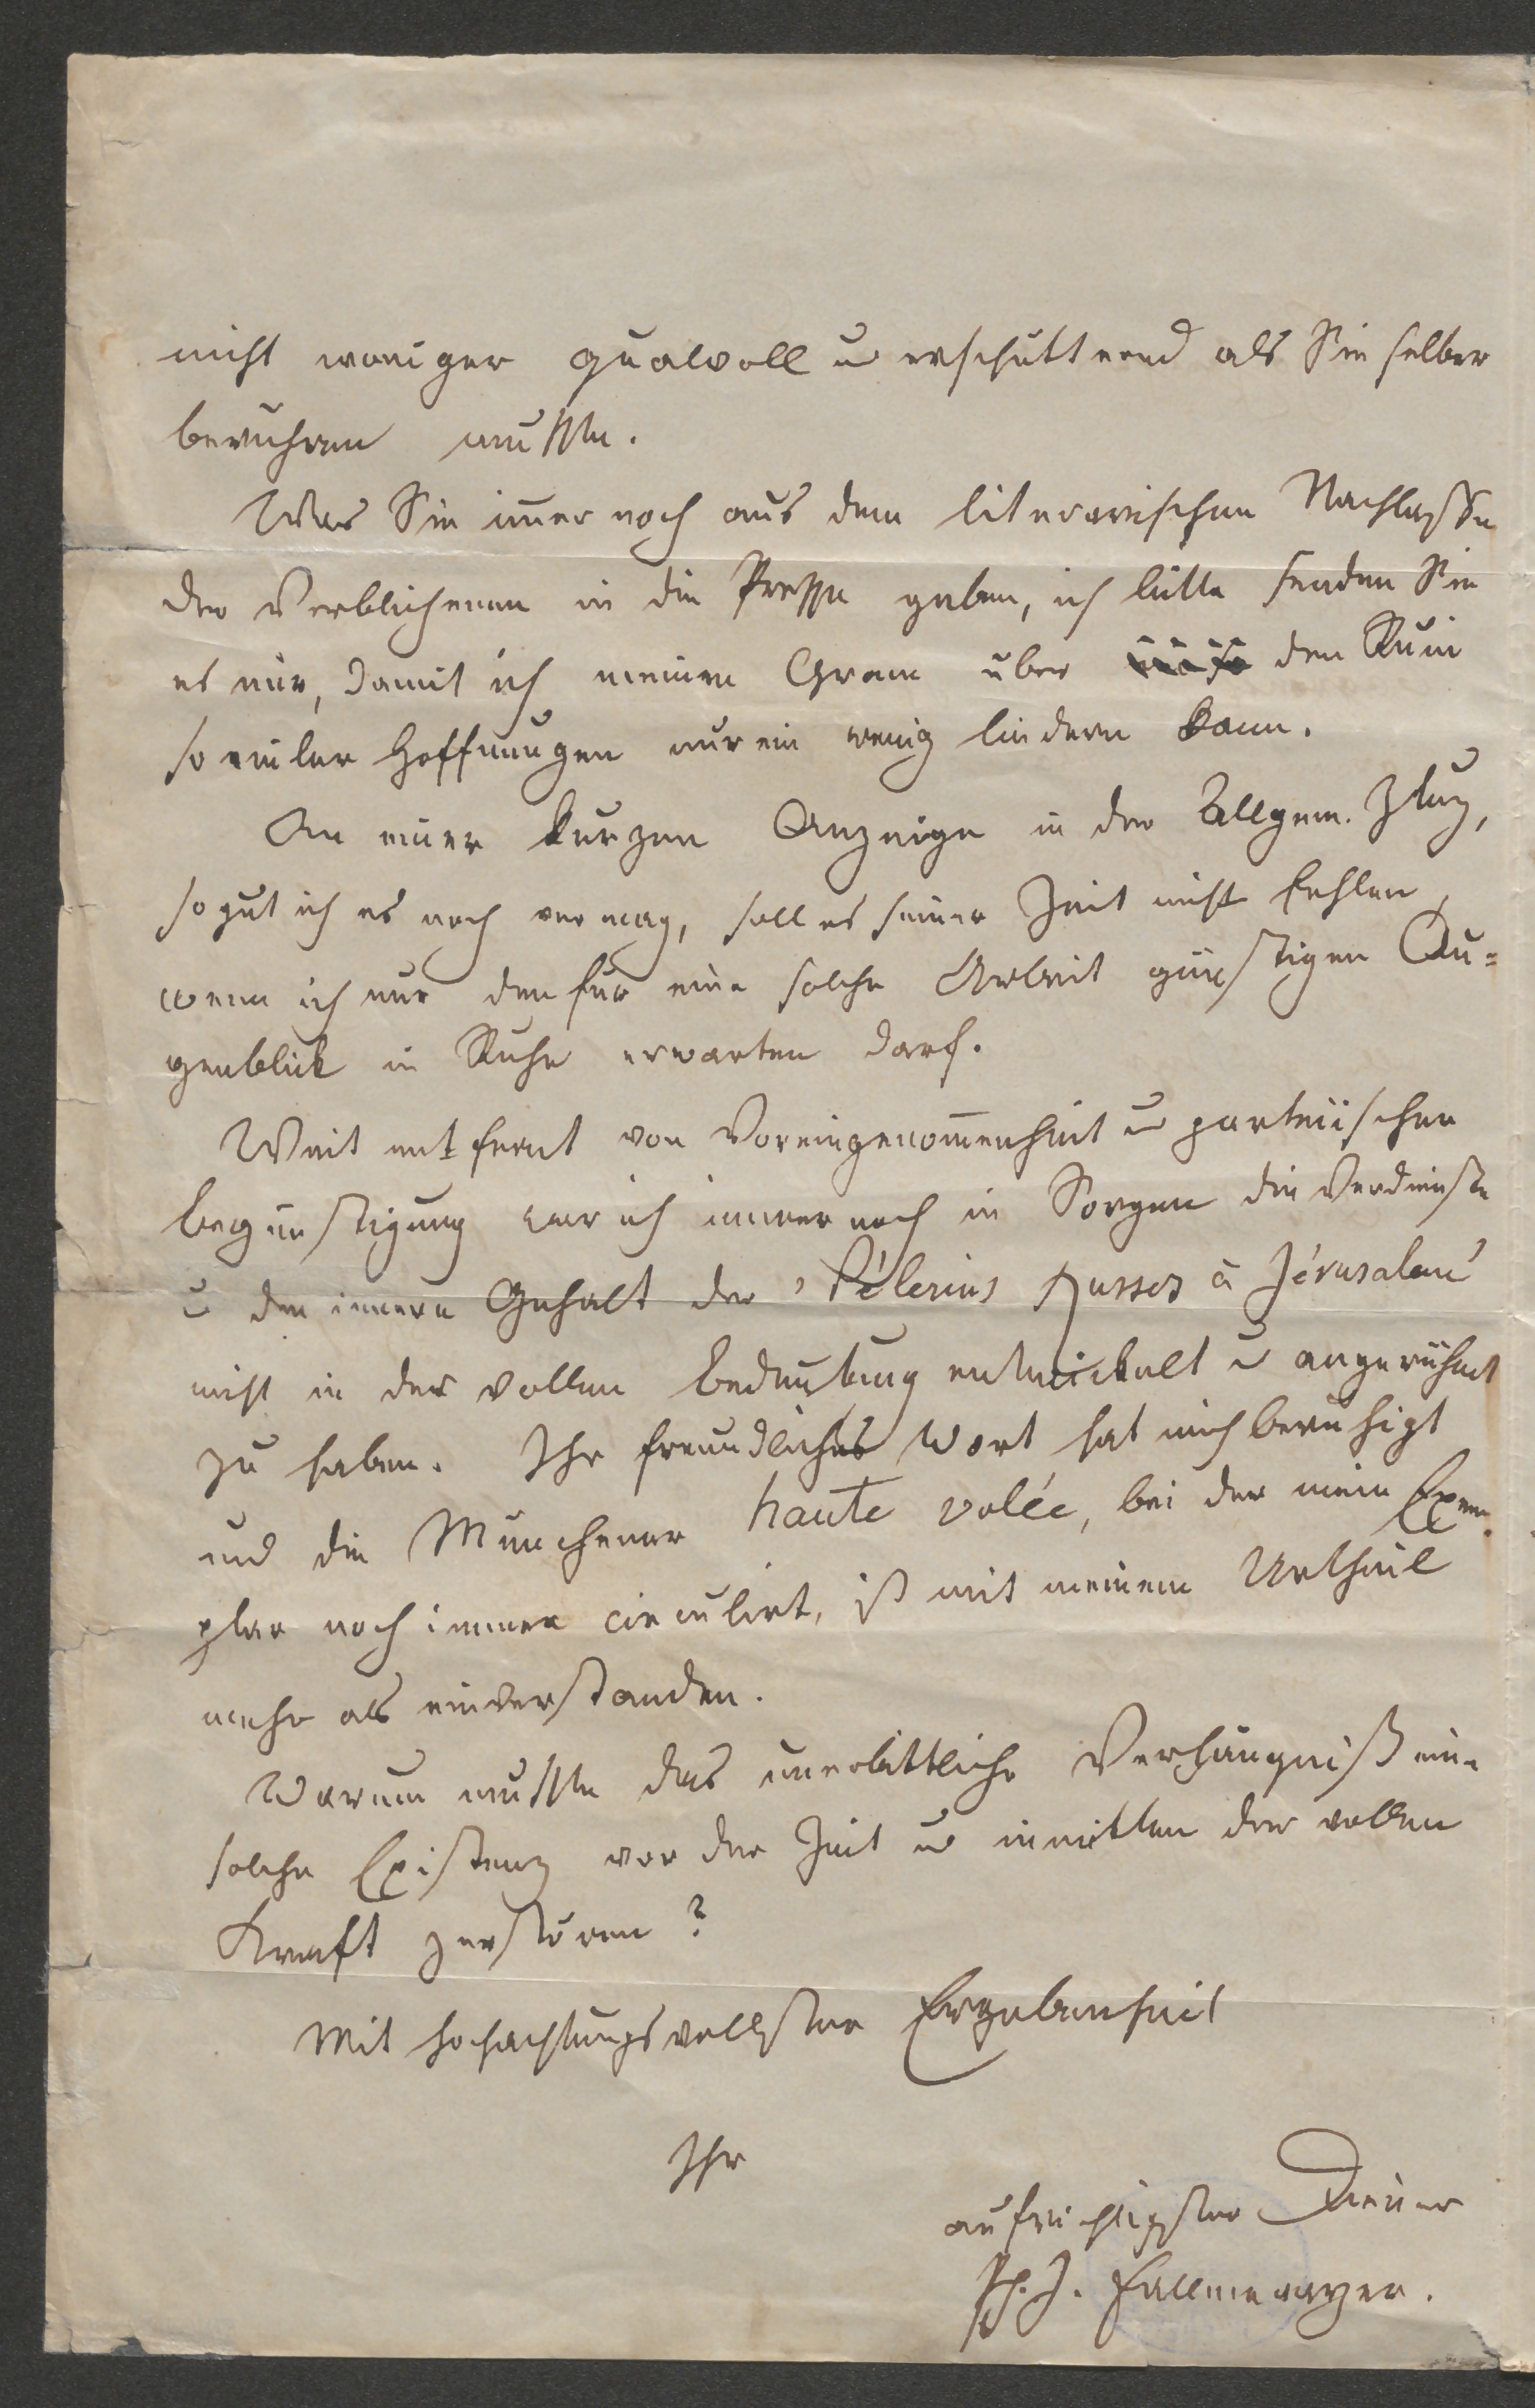 nicht weniger qualvoll u erschütternd als Sie selber
berühren mußte.
Was Sie im̄er noch aus dem literarischen Nachlaße
der Verblichenen in die Presse geben, ich bitte senden Sie
es mir, damit ich meinen Gram über den Ruin
so vieler Hoffnungen nur ein wenig lindern kann.
An einer kurzen Anzeige in der Allgem. Ztung,
so gut ich es noch vermag, soll es seiner Zeit nicht fehlen,
wenn ich nur den für eine solche Arbeit günstigen Au=
genblick in Ruhe erwarten darf.
Weit entfernt von Voreingenom̄enheit u parteiischer
Begünstigung war ich immer noch in Sorgen die Verdienste
u den innern Gehalt der "Pèlerins Russes à Jérusalem"
nicht in der vollen Bedeutung entwickelt u angerühmt
zu haben. Ihr freundliches Wort hat mich beruhigt
und die Münchener haute volée, bei der mein Exem-
plar noch immer circulirt, ist mit meinem Urtheil
mehr als einverstanden.
Warum mußte das unerbittliche Verhängniß eine
solche Existenz vor der Zeit u inmitten der vollen
Kraft zerstören?
Mit hochachtungsvollster Ergebenheit
Ihr
aufrichtigster Diener
Ph. J. Fallmerayer.